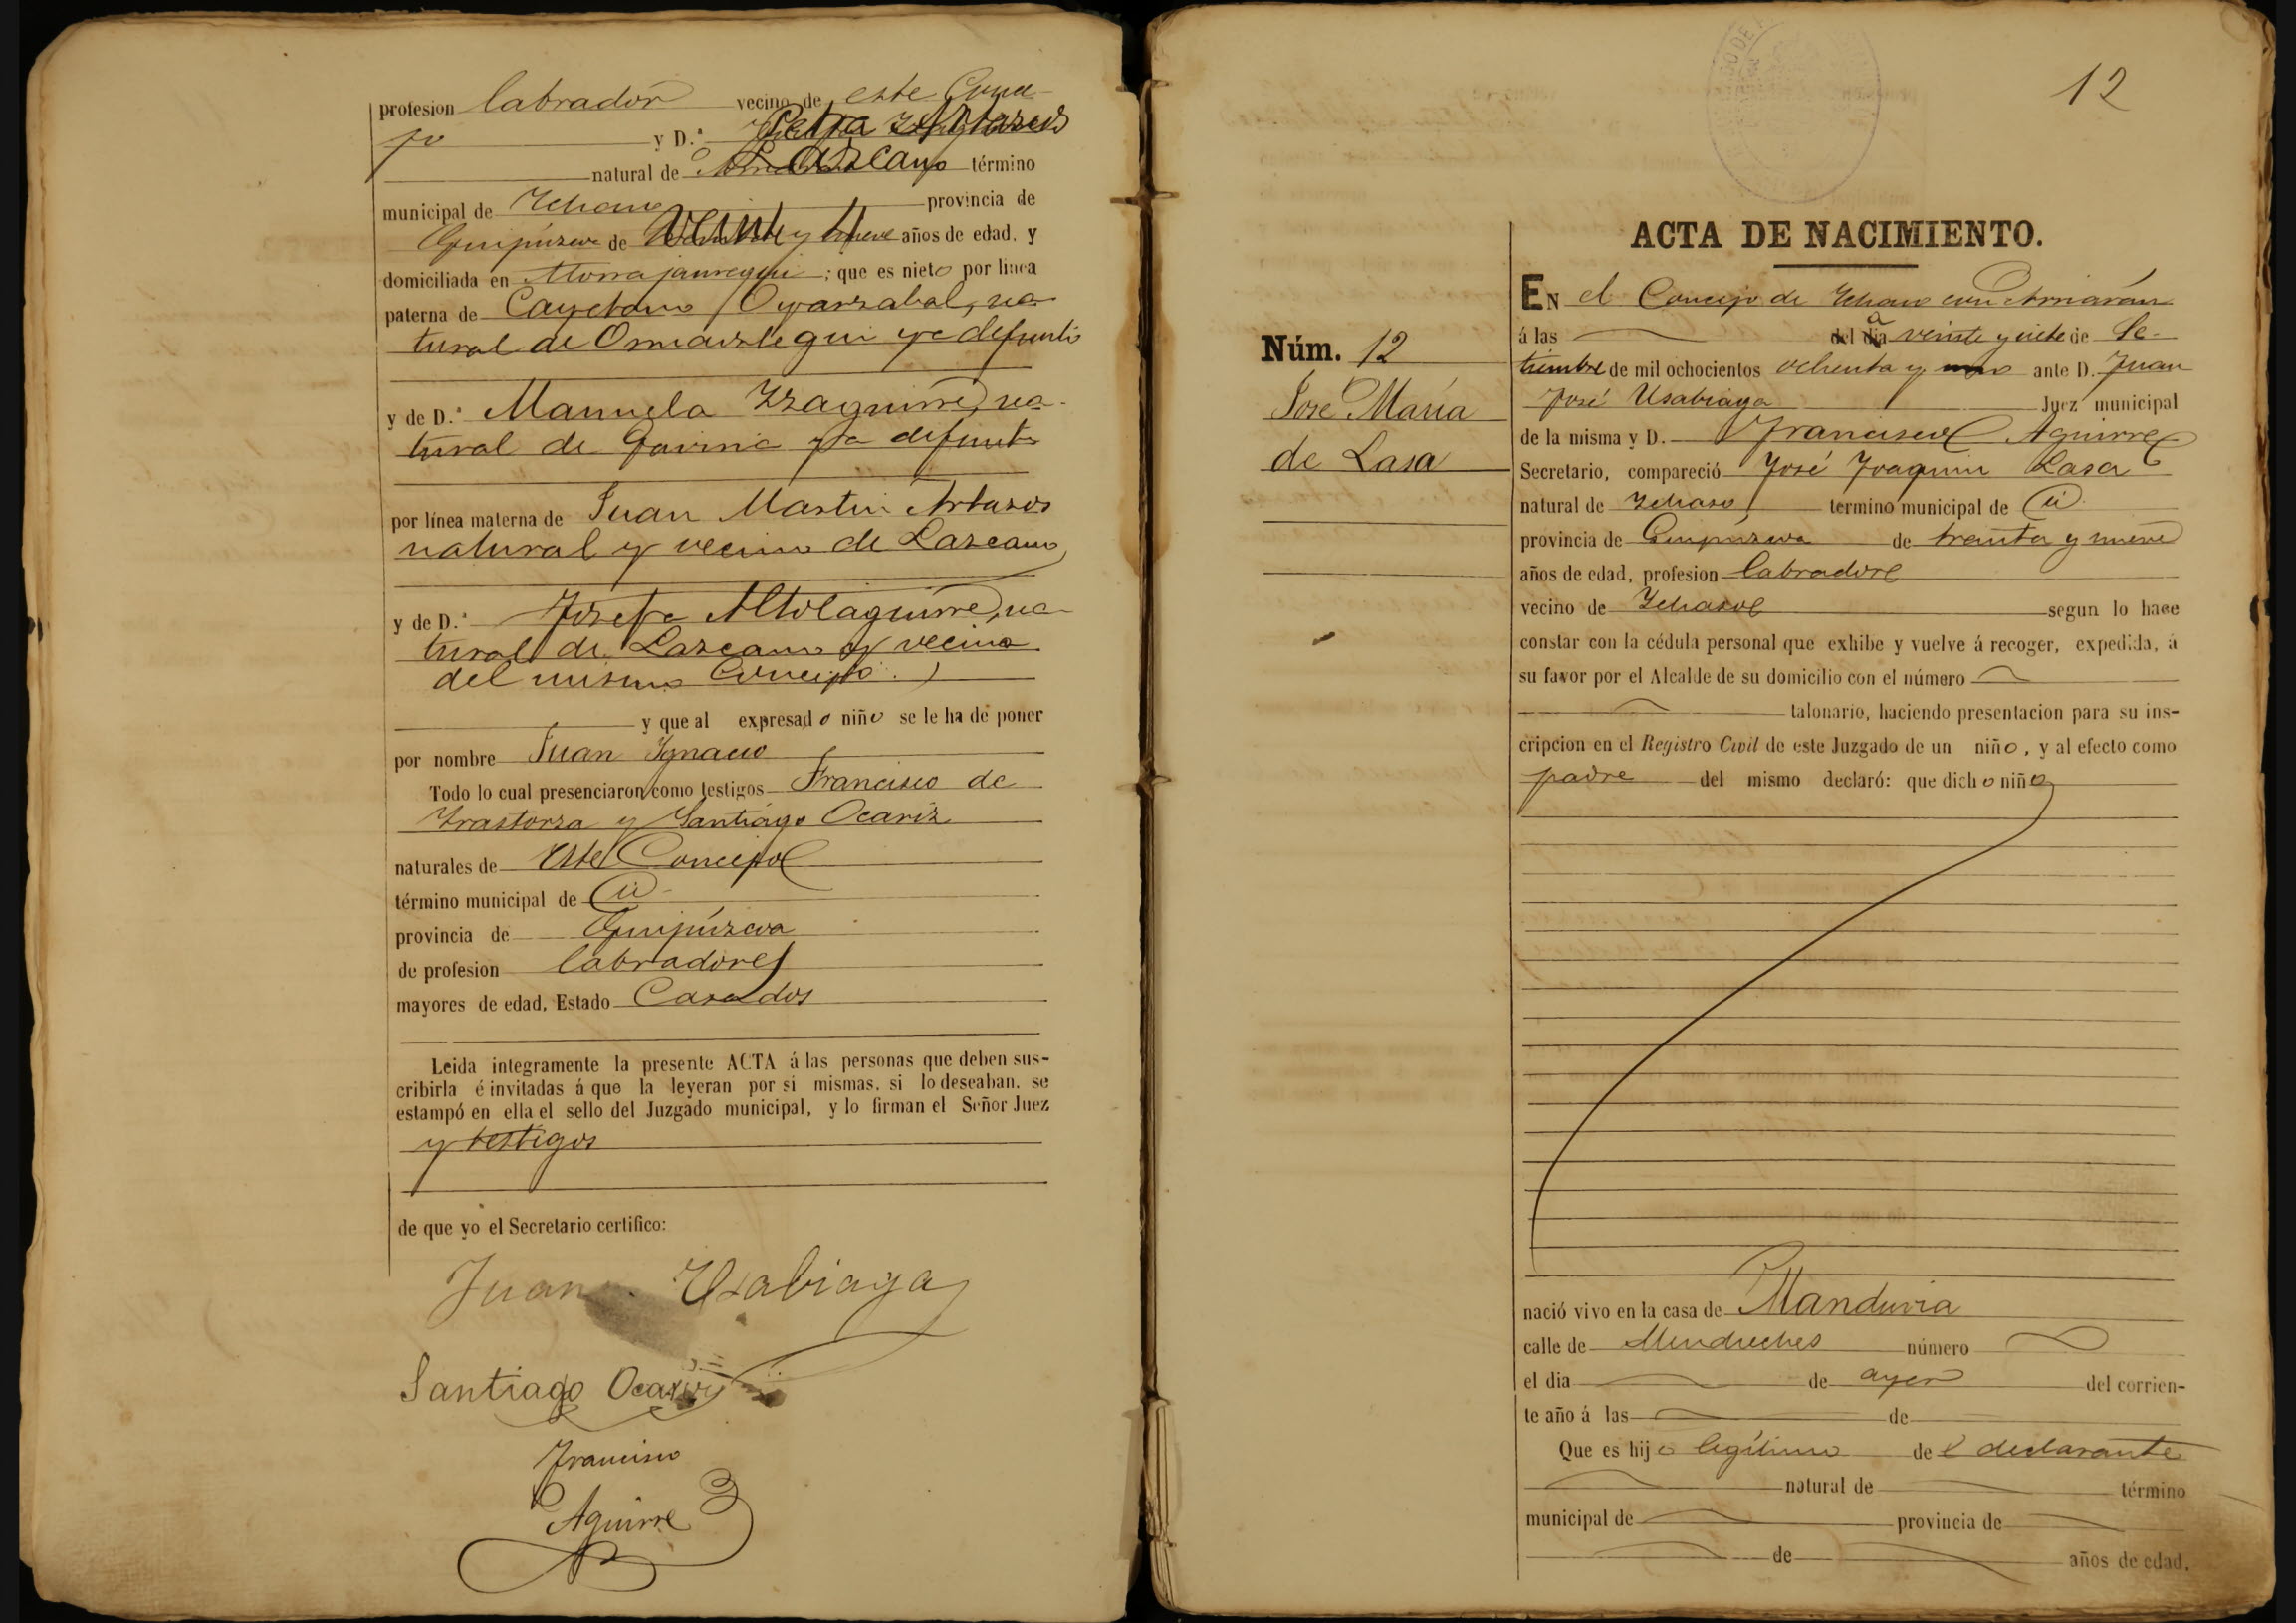 profesion labrador vecino de este Conce-
jo y D.ª Petra Artasus
natural de Lazcano término
municipal de Ichaso provincia de
Guipúzcoa de veinte y nueve años de edad, y
domiciliada en jauregui; que es nieto por línea
paterna de Cayetano Oyarzabal, na-
tural de Ormaiztegui ya defunto
y de D.ª Manuela Yzaguirre, na-
tural de Gavíria ya defunta
por línea materna de Juan Martin Artasos
natural y vecino de Lazcano,
y de D.ª Josefa Altolaguirre, na-
tural de Lazcano y vecina
del mismo Concejo.
y que al expresado niño se le ha de poner
por nombre Juan Ygnacio
Todo lo cual presenciaron como testigos Francisco de
Yrastorza y Santiágo Ocariz
naturales de este Concejo
término municipal de id
provincia de Guipúzcoa
de profesion labradores
mayores de edad, Estado Casados
Leida integramente la presente ACTA á las personas que deben sus-
cribirla é invitadas á que la leyeran por sí mismas, si lo deseaban, se
estampó en ella el sello del Juzgado municipal, y lo firman el Señor Juez
y testigos
de que yo el Secretario certifico:
Juan J. Usabiaga
Santiago Ocariz
Francisco
Aguirre
12
ACTA DE NACIMIENTO.
Núm. 12
José María
de Lasa
EN el Concejo de Ichaso con Arriarán
á las del dia a veinte y siete de Se-
tiembre de mil ochocientos ochenta y uno ante D. Juan
José Usabiaga Juez municipal
de la misma y D. Francisco Aguirre
Secretario, compareció José Joaquin Lasa
natural de Ichaso termino municipal de id
provincia de Guipúzcoa de treinta y nueve
años de edad, profesion labrador
vecino de Ichaso segun lo hace
constar con la cédula personal que exhibe y vuelve á recoger, expedida, á
su favor por el Alcalde de su domicilio con el número
talonario, haciendo presentacion para su ins-
cripcion en el Registro Civil de este Juzgado de un niño, y al efecto como
padre del mismo declaró: que dicho niño
nació vivo en la casa de Manduvia
calle de número
el dia de ayer del corrien-
te año á las de
Que es hijo legítimo de l declarante
natural de término
municipal de provincia de
de años de edad,